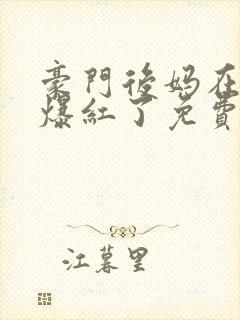 豪門後妈在
爆紅了免費
江暮里